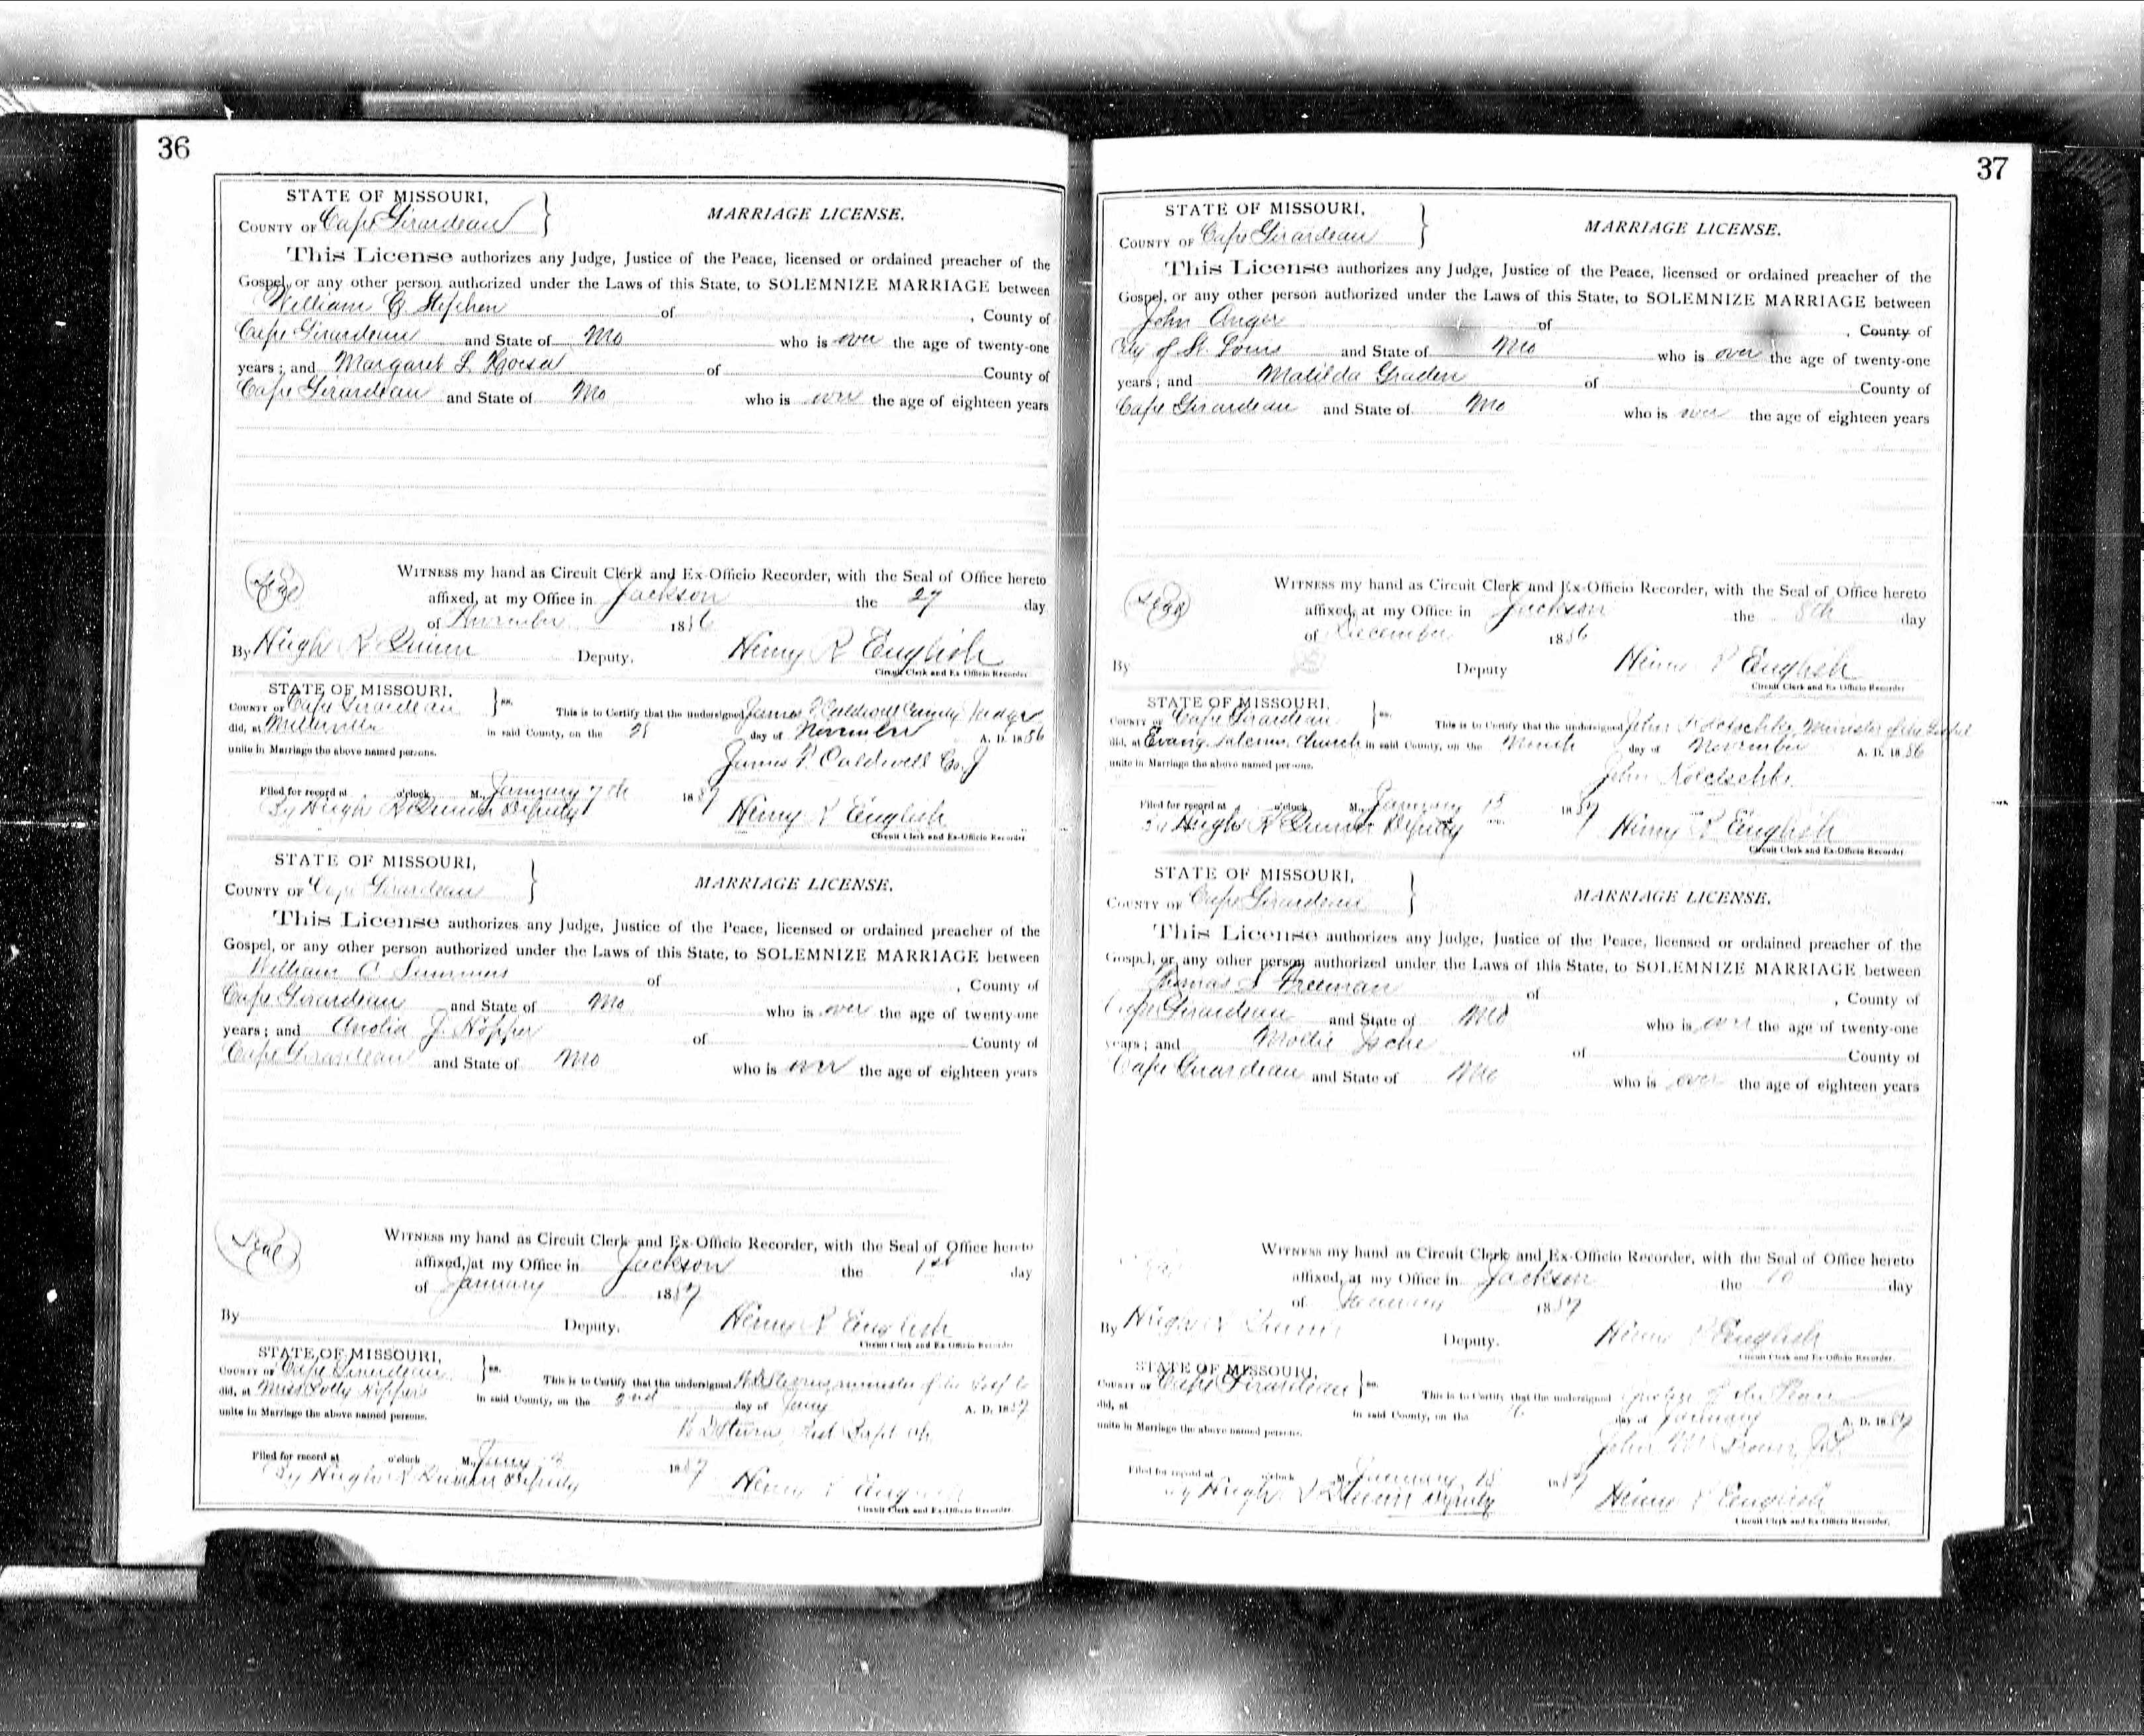 36
STATE OF MISSOURI,
COUNTY OF Cape Girardeau
MARRIAGE LICENSE.
This License authorizes any Judge, Justice of the Peace, licensed or ordained preacher of the
Gospel, or any other person authorized under the Laws of this State, to SOLEMNIZE MARRIAGE between
William Stephen of , County of
Cape Girardeau and State of Mo who is over the age of twenty-one
years; and Margaret L of County of
Cape Girardeau and State of Mo who is over the age of eighteen years
Seal
WITNESS my hand as Circuit Clerk and Ex-Officio Recorder, with the Seal of Office hereto
affixed, at my Office in Jackson the 27 day
of November 1886
By Hugh R Quinn Deputy. Henry R English
Circuit Clerk and Ex Officio Recorder
STATE OF MISSOURI,
COUNTY OF Cape Girardeau ss. This is to Certify that the undersigned James P Caldwell County Judge
did, at Millerville in said County, on the 28 day of November A. D. 1886
unite in Marriage the above named persons.
James P. Caldwell Co. J
Filed for record at o'clock M., January 7th 1887
By Hugh R Quinn Deputy Henry R English
Circuit Clerk and Ex-Officio Recorder
STATE OF MISSOURI,
COUNTY OF Cape Girardeau
MARRIAGE LICENSE.
This License authorizes any Judge, Justice of the Peace, licensed or ordained preacher of the
Gospel, or any other person authorized under the Laws of this State, to SOLEMNIZE MARRIAGE between
William C. Summers of , County of
Cape Girardeau and State of Mo who is over the age of twenty-one
years; and J. Hopper of County of
Cape Girardeau and State of Mo who is over the age of eighteen years
Seal
WITNESS my hand as Circuit Clerk and Ex-Officio Recorder, with the Seal of Office hereto
affixed, at my Office in Jackson the 1st day
of January 1887
By Deputy. Henry R English
Circuit Clerk and Ex-Officio Recorder
STATE OF MISSOURI,
COUNTY OF Cape Girardeau ss. This is to Certify that the undersigned minister of the
did, at Miss Polly Hoppers in said County, on the 2nd day of Jany A. D. 1887
unite in Marriage the above named persons.
Bapt ch
Filed for record at o'clock M., Jany 1887
By Hugh R Quinn Deputy Henry R English
Circuit Clerk and Ex-Officio Recorder.
37
STATE OF MISSOURI,
COUNTY OF Cape Girardeau
MARRIAGE LICENSE.
This License authorizes any Judge, Justice of the Peace, licensed or ordained preacher of the
Gospel, or any other person authorized under the Laws of this State, to SOLEMNIZE MARRIAGE between
John Anger of , County of
City of St. Louis and State of Mo who is over the age of twenty-one
years; and Matilda Graden of County of
Cape Girardeau and State of Mo who is over the age of eighteen years
Seal
WITNESS my hand as Circuit Clerk and Ex-Officio Recorder, with the Seal of Office hereto
affixed, at my Office in Jackson the 8th day
of December 1886
By Deputy Henry R English
Circuit Clerk and Ex Officio Recorder
STATE OF MISSOURI,
COUNTY OF Cape Girardeau ss. This is to Certify that the undersigned John Koletschke, Minister of the Gospel
did, at Evang. Salems Church in said County, on the Ninth day of November A. D. 1886
unite in Marriage the above named persons.
John Koletschke
Filed for record at o'clock M., January 1887
By Hugh R Quinn Deputy Henry R English
Circuit Clerk and Ex-Officio Recorder
STATE OF MISSOURI,
COUNTY OF Cape Girardeau
MARRIAGE LICENSE.
This License authorizes any Judge, Justice of the Peace, licensed or ordained preacher of the
Gospel, or any other person authorized under the Laws of this State, to SOLEMNIZE MARRIAGE between
Thomas S Freeman of , County of
Cape Girardeau and State of Mo who is over the age of twenty-one
years; and Mollie of County of
Cape Girardeau and State of Mo who is over the age of eighteen years
WITNESS my hand as Circuit Clerk and Ex-Officio Recorder, with the Seal of Office hereto
affixed, at my Office in Jackson the 10 day
of January 1887
By Hugh R Quinn Deputy. Henry R English
Circuit Clerk and Ex-Officio Recorder.
STATE OF MISSOURI,
COUNTY OF Cape Girardeau ss. This is to Certify that the undersigned Justice of the Peace
did, at in said County, on the day of January A. D. 1887
unite in Marriage the above named persons.
John
Filed for record at o'clock M., January 18 1887
By Hugh R Quinn Deputy Henry R English
Circuit Clerk and Ex-Officio Recorder.